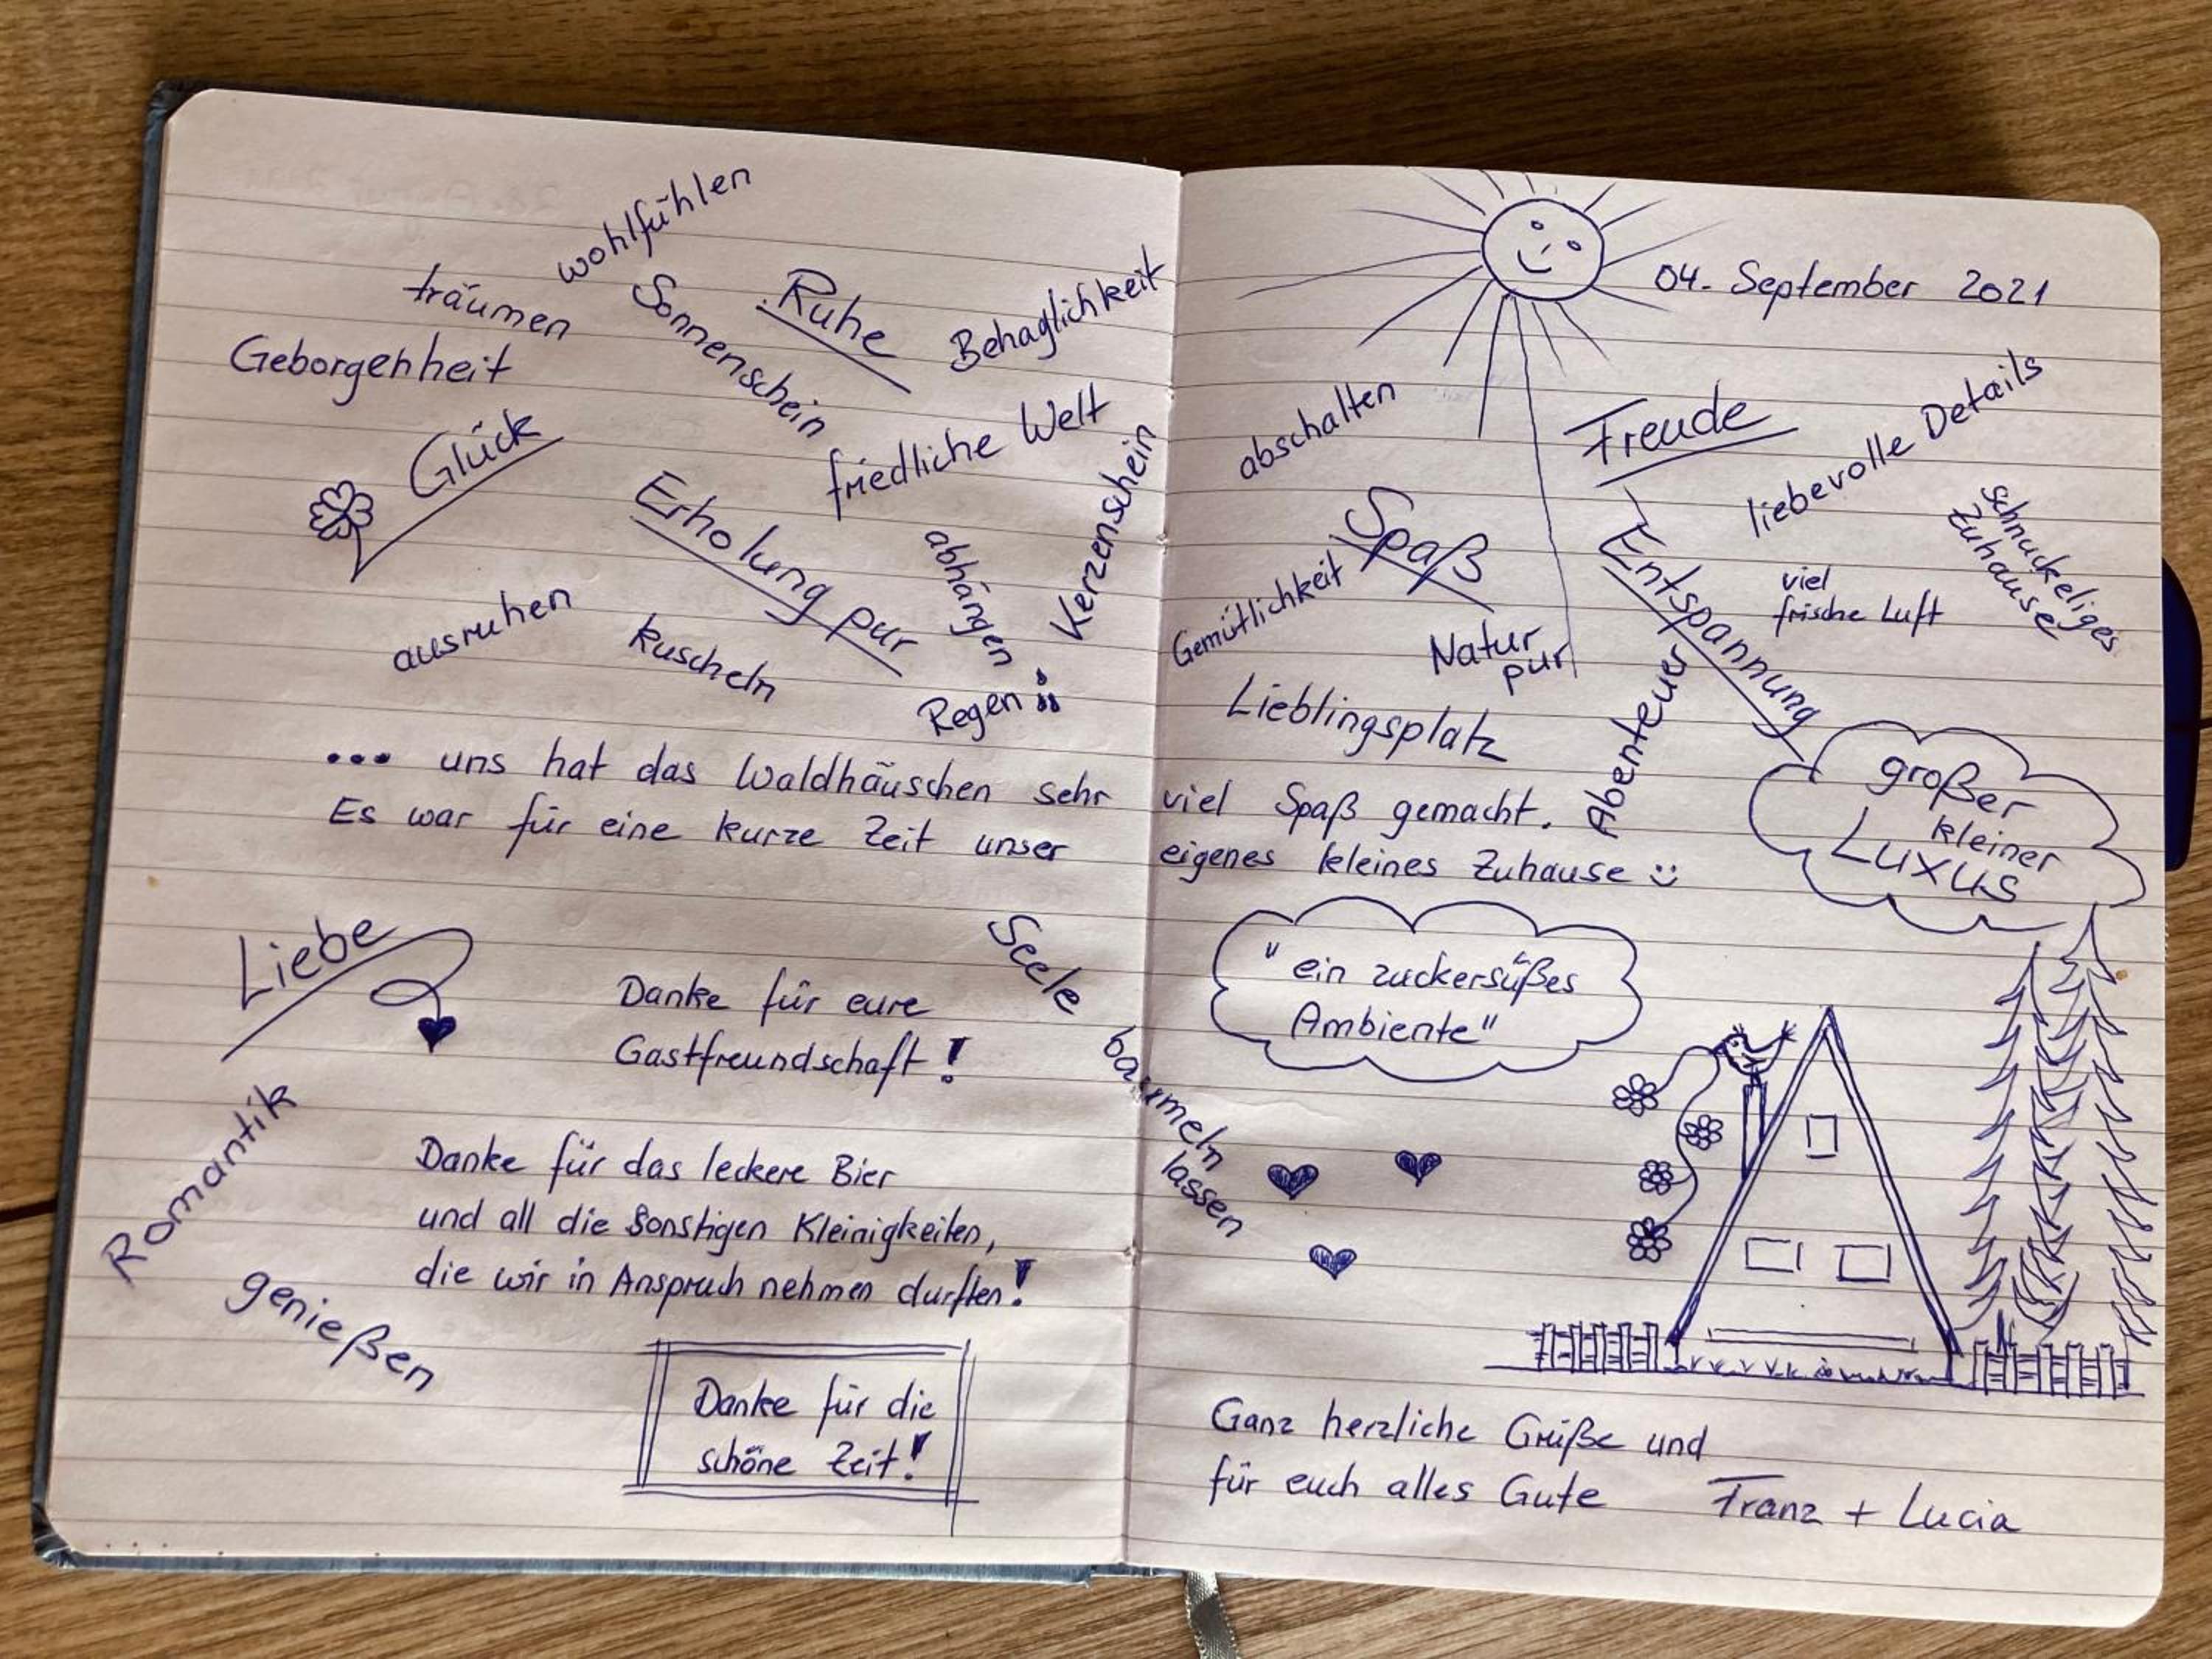 wohlfühlen
träumen
Sonnenschein
Ruhe
Behaglichkeit
Geborgenheit
Glück
friedliche Welt
Erholung pur
abhängen
Kerzenschein
ausruhen
kuscheln
Regen
04. September 2021
abschalten
Freude
liebevolle Details
Spaß
Gemütlichkeit
Entspannung
viel
frische Luft
schnuckeliges
Zuhause
Natur
pur
Lieblingsplatz
Abenteuer
großer
kleiner
Luxus
... uns hat das Waldhäuschen sehr viel Spaß gemacht.
Es war für eine kurze Zeit unser eigenes kleines Zuhause :)
Liebe
Danke für eure
Gastfreundschaft!
Seele
baumeln
lassen
"ein zuckersüßes
Ambiente"
Romantik
Danke für das leckere Bier
und all die sonstigen Kleinigkeiten,
die wir in Anspruch nehmen durften!
genießen
Danke für die
schöne Zeit!
Ganz herzliche Grüße und
für euch alles Gute Franz + Lucia